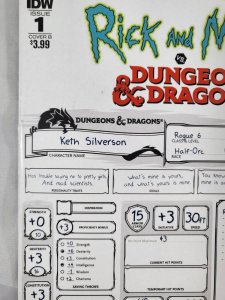 IDW
ISSUE
1
COVER B
$3.99
RICK AND M
VS
DUNGEON
& DRAGO
DUNGEONS & DRAGONS®
Keth Silverson
CHARACTER NAME
Rogue 6
CLASS & LEVEL
Half-Orc
RACE
Has trouble saying no to pretty girls.
And mad scientists.
PERSONALITY TRAITS
What's mine is yours,
and what's yours is mine.
IDEALS
STRENGTH
+0
10
DEXTERITY
+3
16
CONSTITUTION
+3
INSPIRATION
+3
PROFICIENCY BONUS
+0 Strength
+6 Dexterity
+3 Constitution
+4 Intelligence
Wisdom
+2 Charisma
SAVING THROWS
15
ARMOR
CLASS
+3
INITIATIVE
30FT
SPEED
CURRENT HIT POINTS
TEMPORARY HIT POINTS
+3